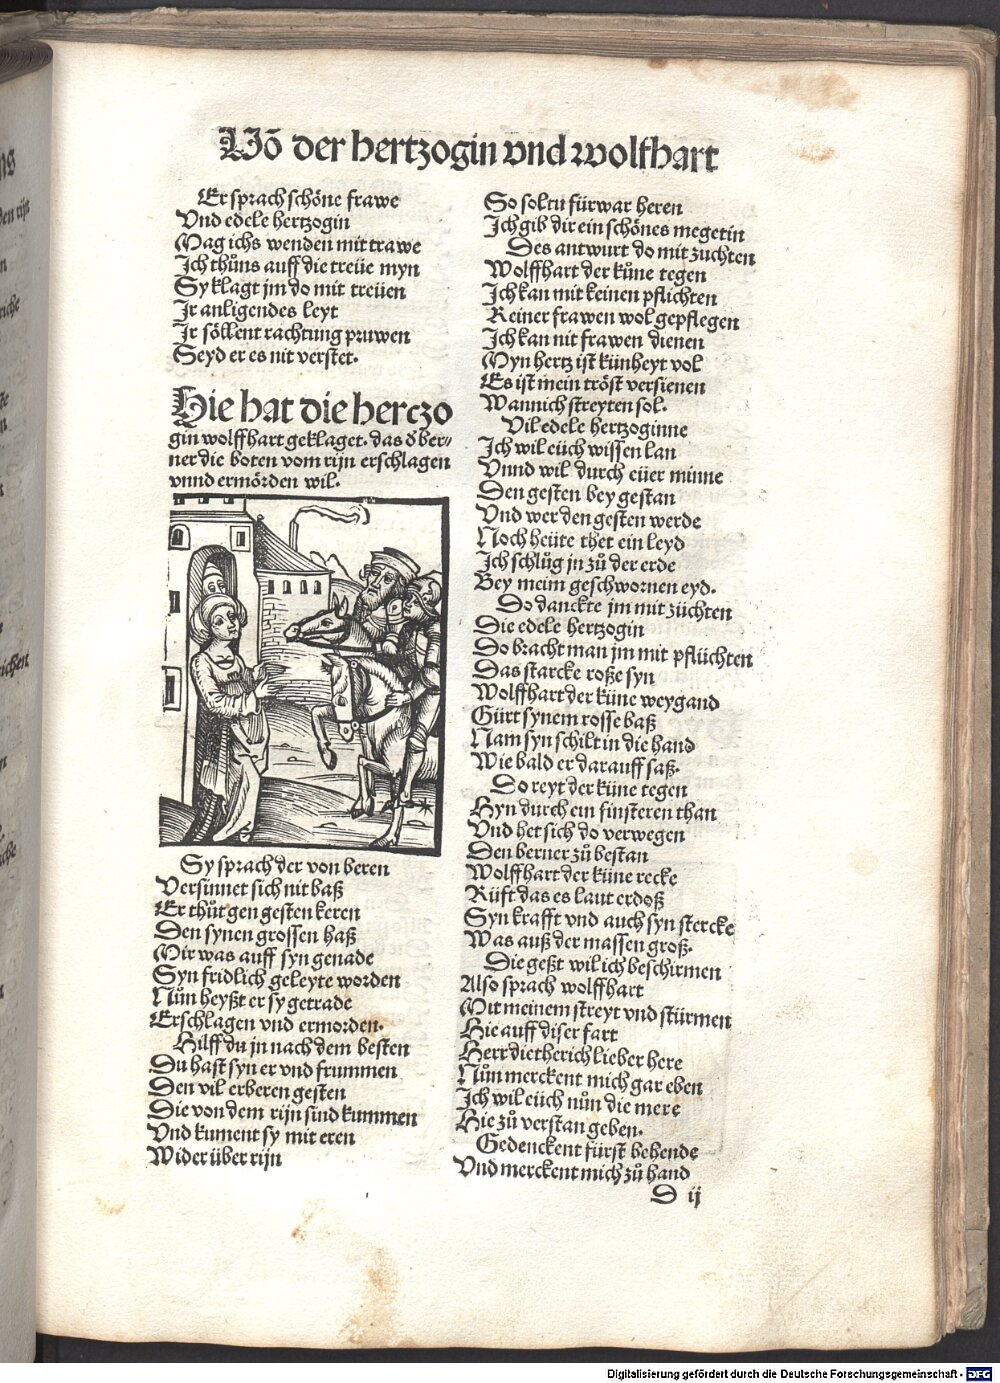 Võ der hertzogin vnd wolfhart
Er sprach schöne frawe
Vnd edele hertzogin
Mag ichs wenden mit trawe
Ich thůns auff die treüe myn
Sy klagt jm do mit treüen
Ir anligendes leyt
Ir söllent rachtung pruwen
Seyd er es nit verstet.
Hie hat die herczo
gin wolffhart geklaget. das d̕ ber⸗
ner die boten vom rijn erschlagen
vnnd ermörden wil.
Sy sprach der von beren
Versinnet sich nit baß
Er thůt gen gesten keren
Den synen grossen haß
Mir was auff syn genade
Syn fridlich geleyte worden
Nůn heyßt er sy getrade
Erschlagen vnd ermorden.
Hilff du jn nach dem besten
Du hast syn er vnd frummen
Den vil erberen gesten
Die von dem rijn sind kummen
Vnd kument sy mit eren
Wider über rijn
So soltu fürwar heren
Ich gib dir ein schönes megetin
Des antwurt do mit zuchten
Wolffhart der küne tegen
Ich kan mit keinen pflichten
Reiner frawen wol gepflegen
Ich kan nit frawen dienen
Myn hertz ist künheyt vol
Es ist mein tröst versienen
Wann ich streyten sol.
Vil edele hertzoginne
Ich wil eüch wissen lan
Vnnd wil durch eüer minne
Den gesten bey gestan
Vnd wer den gesten werde
Noch heüte thet ein leyd
Ich schlůg jn zů der erde
Bey meim geschwornen eyd.
Do danckte jm mit züchten
Die edele hertzogin
Do bracht man jm mit pflüchten
Das starcke roße syn
Wolffhart der küne weygand
Gürt synem rosse baß
Nam syn schilt in die hand
Wie bald er darauff saß.
Do reyt der küne tegen
Hyn durch ein finsteren than
Vnd het sich do verwegen
Den berner zů bestan
Wolffhart der küne recke
Rüfft das es laut erdoß
Syn krafft vnd auch syn stercke
Was auß der massen groß.
Die geßt wil ich beschirmen
Also sprach wolffhart
Mit meinem streyt vnd stürmen
Hie auff diser fart
Herr dietherich lieber here
Nůn merckent mich gar eben
Ich wil eüch nůn die mere
Hie zů verstan geben.
Gedenckent fürst behende
Vnd merckent mich zů hand
D ij
Digitalisierung gefördert durch die Deutsche Forschungsgemeinschaft - DFG